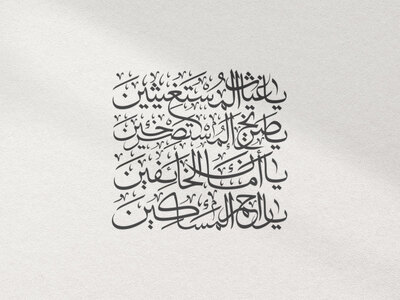 يا غياث المستغيثين
يا صريخ المستصرخين
يا أمان الخائفين
يا راحم المساكين